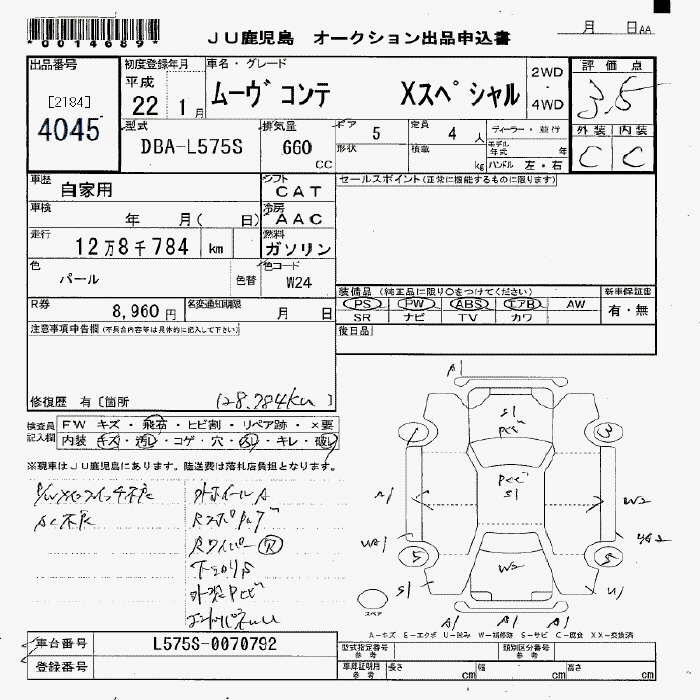 *0014689*
JU鹿児島 オークション出品申込書
月 日 AA
出品番号
[2184]
4045
初度登録年月
平成
22 1月
車名・グレード
ムーヴコンテ Xスペシャル
2WD
・
4WD
評価点
3.5
外装 内装
C C
型式
DBA-L575S
排気量
660
CC
ギア 5
形状
定員 4 人
積載 kg
ディーラー・並行
モデル年式 年
ハンドル 左・右
車歴
自家用
シフト
CAT
セールスポイント(正常に機能するものに限ります)
車検
年 月( 日)
冷房
AAC
走行
12万8千784 km
燃料
ガソリン
色
パール
色替
色コード
W24
装備品 (純正品に限り○をつけてください)
PS PW ABS エアB AW
SR ナビ TV カワ
新車保証書
有・無
R券
8,960円
名変通知期限
月 日
後日品
注意事項申告欄(不具合内容等は具体的に記入して下さい)
修復歴 有〔箇所 (128.784km)〕
検査員
記入欄
FW キズ・飛石・ヒビ割・リペア跡・×要
内装 キズ・汚レ・コゲ・穴・スレ・キレ・破レ
※現車はJU鹿児島にあります。陸送費は落札店負担となります。
外ホイールA
Rワイパー R
下回りS
A1
S1
3
S1
A1
W2
UA1
5
W2
5
S1
U1
A1 A1 A1
スペア
A-キズ E-エクボ U-凹み W-補修跡 S-サビ C-腐食 XX-交換済
車台番号
L575S-0070792
登録番号
型式指定番号
参考
類別区分番号
参考
車庫証明用
参考
長さ cm
幅 cm
高さ cm